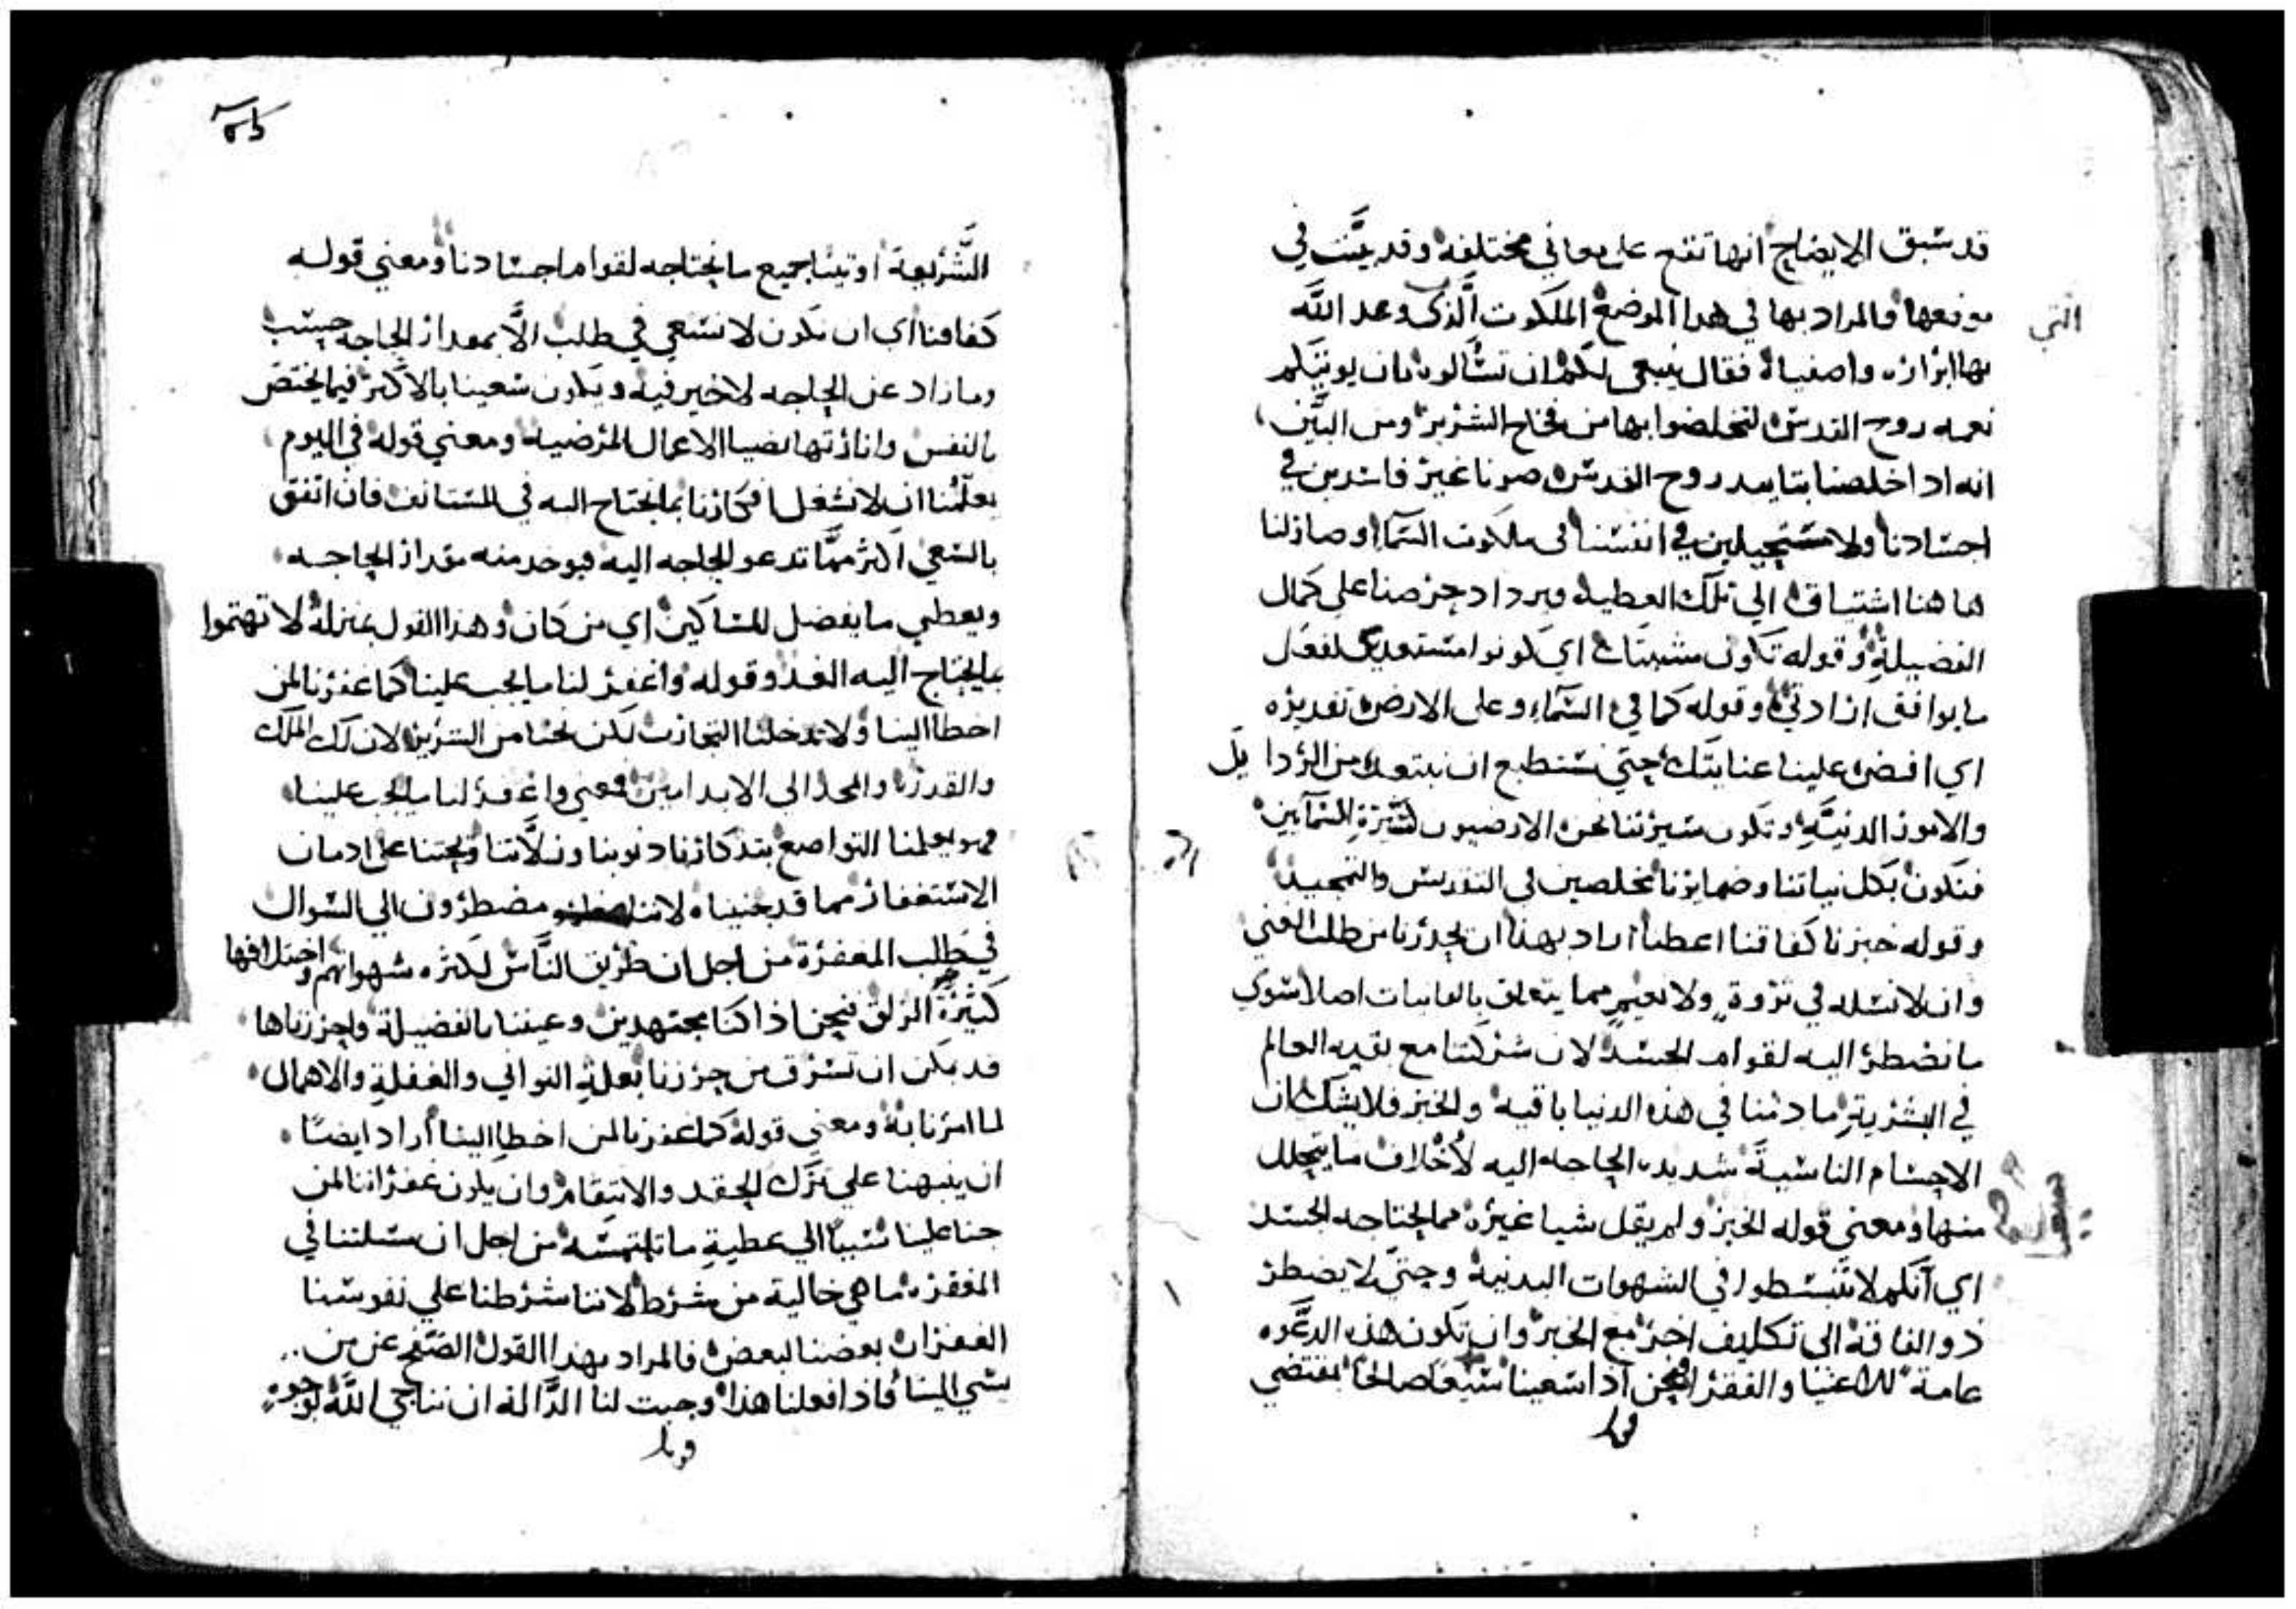 قد سبق الايضاح انها تقع على معاني مختلفه وقد بينت في
التي
موضعها فالمراد بها في هدا الموضع الملكوت الذى وعد الله
بها ابراره واصفياه فقال ينبغى لكم ان تسالوه بان يوتيكم
نعمه روح القدس لتخلصوا بها من فخاخ الشرير ومن البين
انه ادا خلصنا بتاييد روح القدس صرنا غير فاسدين في
اجسادنا ولا مستحيلين في انفسنا فى ملكوت السما وصار لنا
ها هنا اشتياق الى تلك العطيه ويزداد حرصنا على كمال
الفضيله وقوله تكون مشيتك اي كونوا مستعدين لفعل
ما يوافق ارادتي وقوله كما في السماء وعلى الارض تقديره
اي افض علينا عنايتك حتى نستطيع ان نبتعد من الردايل
والامور الدنيه وتكون سيرتنا نحن الارضيون كسيرة السمآيين
فنكون بكل نياتنا وضمايرنا مخلصين في التقديس والتمجيد
وقوله خبزنا كفافنا اعطنا اراد بهدا ان يحدرنا من طلب الغنى
وان لا نسله في ثروة ولا نعيم مما يتعلق بالفانيات اصلا سوي
ما نضطر اليه لقوام الجسد لان شركتنا مع بقيه العالم
في البشرية ما دمنا في هذه الدنيا باقيه والخبز فلا يشك ان
الاجسام الناسية شديده الحاجه اليه لاخلاف ما يتحلل
منها ومعنى قوله الخبز ولم يقل شيا غيره مما يحتاجه الجسد
اي انكم لا تنبسطوا في الشهوات البدنيه وحتى لا يضطر
ذو الفاقه الى تكليف اخر مع الخبز وان تكون هذه الدعوه
عامة للاغنيا والفقرا فنحن ادا سعينا سعيا صالحا بمقتضي
الشريعة اوتينا جميع ما نحتاجه لقوام اجسادنا ومعني قوله
كفافنا اي ان نكون لا نسعي في طلب الا بمقدار الحاجه حسب
وما زاد عن الحاجه لا خير فيه ويكون سعينا بالاكثر فيما يختص
بالنفس وانارتها بضيا الاعمال المرضيه ومعني قوله في اليوم
يعلمنا ان لا نشغل افكارنا بما نحتاج اليه في المستانف فان اتفق
بالسعي اكثر مما تدعو الحاجه اليه فيوخد منه مقدار الحاجه
ويعطي ما يفضل للمساكين اي من كان وهذا القول بمنزلة لا تهتموا
بما يحتاج اليه الغد وقوله واغفر لنا ما يجب علينا كما غفرنا لمن
اخطا الينا ولا تدخلنا التجارب لكن نجنا من الشرير لان لك الملك
والقدره والمجد الى الابد امين فمعني واغفر لنا ما يجب علينا
فهو يعلمنا التواضع بتدكارنا دنوبنا وزلاتنا ويحتنا على ادمان
الاستغفار مما قد جنيناه لاننا مضطرون الي السوال
في طلب المغفرة من اجل ان طريق الناس لكثره شهواتهم واختلافها
كثيرة الزلق فنحن اذا كنا مجتهدين وعيننا بالفضيلة واحرزناها
قد يمكن ان تسرق من حرزنا بعلة التواني والغفلة والاهمال
لما امرنا به ومعني قوله كما غفرنا لمن اخطا الينا اراد ايضا
ان ينبهنا علي ترك الحقد والانتقام وان يكون غفراننا لمن
جنا علينا سببا الي عطية ما نلتمسه من اجل ان مسلتنا في
المغفره ما هي خالية من شرط لاننا شرطنا علي نفوسنا
الغفران بعضنا لبعض فالمراد بهدا القول الصفح عن من
يسي الينا فاذا فعلنا هذا وجبت لنا الدالة ان نناجي الله بوجوه